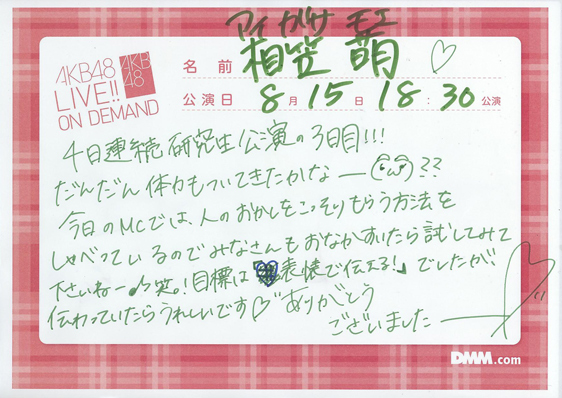 アイ がサ モエ
AKB48
LIVE!!
ON DEMAND
AKB
48
名前 相笠 萌 ♡
公演日 8月15日 18:30公演
4日連続研究生公演の3日目!!!
だんだん体力もついてきたかなー(・ω・)??
今日のMCでは、人のおかしをこっそりもらう方法を
しゃべっているのでみなさんもおなかすいたら試してみて
下さいねー♪笑。!目標は 表情で伝える!」でしたが!
伝わっていたらうれしいです♡ ありがとう
ございましたー
DMM.com